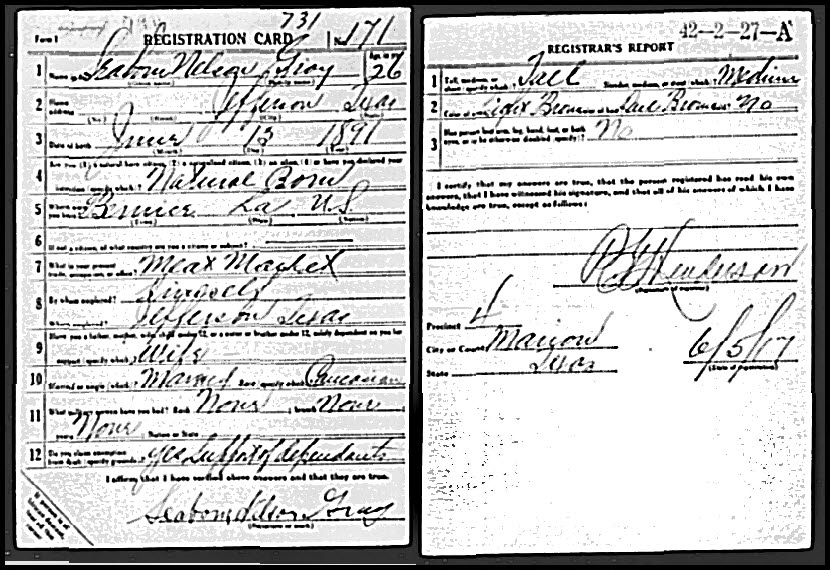 731
Form 1 REGISTRATION CARD No. 171
1 Name in full Seaborn Nelson Gray Age, in yrs. 26
(Given name) (Family name)
2 Home address Jefferson Texas
(No.) (Street) (City) (State)
3 Date of birth June 13 1891
(Month) (Day) (Year)
4 Are you (1) a natural born citizen, (2) a naturalized citizen, (3) an alien, (4) or have you declared your
intention (specify which)? Natural Born
5 Where were you born? Bernice La US
(Town) (State) (Nation)
6 If not a citizen, of what country are you a citizen or subject?
7 What is your present trade, occupation, or office? Meat Market
8 By whom employed? Himself
Where employed? Jefferson Texas
9 Have you a father, mother, wife, child under 12, or a sister or brother under 12, solely dependent on you for
support (specify which)? Wife
10 Married or single (which)? Married Race (specify which)? Caucasian
11 What military service have you had? Rank None ; branch None
years None ; Nation or State
12 Do you claim exemption from draft (specify grounds)? Yes Support of dependants
I affirm that I have verified above answers and that they are true.
Seaborn Nelson Gray
(Signature or mark)
42-2-27-A
REGISTRAR'S REPORT
1 Tall, medium, or short (specify which)? Tall Slender, medium, or stout (which)? Medium
2 Color of eyes? Light Brown Color of hair? Dark Brown Bald? No
3 Has person lost arm, leg, hand, foot, or both
eyes, or is he otherwise disabled (specify)? No
I certify that my answers are true, that the person registered has read his own
answers, that I have witnessed his signature, and that all of his answers of which I have
knowledge are true, except as follows:
Henderson
(Signature of registrar)
Precinct 4
City or County Marion
State Texas
6/5/17
(Date of registration)